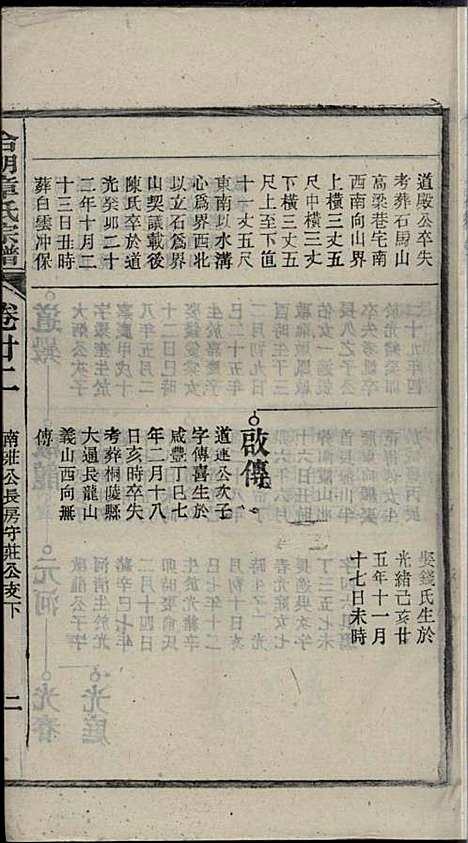 道嚴公卒失
考葬石馬山
高梁巷宅南
西南向山界
上橫三丈五
尺中橫三丈
下橫三丈五
尺上至下直
十一丈五尺
東南以水溝
心爲界西北
以立石爲界
山契議載後
陳氏卒於道
光癸卯二十
三年十月二
十三日丑時
葬白雲冲保
娶錢氏生於
光緒己亥廿
五年十一月
十七日未時
啟傳
道連公次子
字傳喜生於
咸豐丁巳七
年二月十八
日亥時卒失
考葬桐陵縣
大通長龍山
義山西向無
傳
合朝章氏宗譜
卷廿二
南莊公長房守莊公支下
二